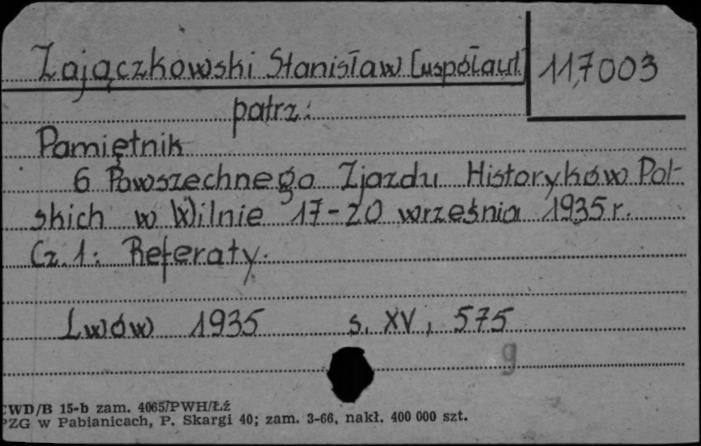 Zajączkowski Stanisław [współaut.] 117003
patrz:
Pamiętnik
6 Powszechnego Zjazdu Historyków Pol-
skich w Wilnie 17-20 września 1935 r.
Cz. 1: Referaty.
Lwów 1935 s. XV, 575
9
CWD/B 15-b zam. 4065/PWH/Łż
PZG w Pabianicach, P. Skargi 40; zam. 3-66, nakł. 400 000 szt.